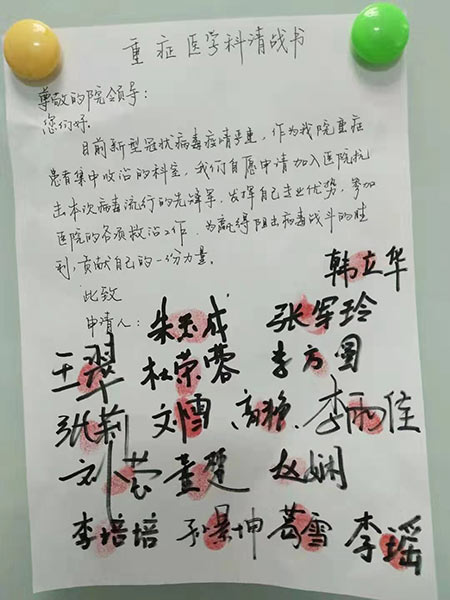 重症医学科请战书
尊敬的院领导：
您们好。
目前新型冠状病毒疫情严重，作为我院重症
患者集中收治的科室，我们自愿申请加入医院抗
击本次病毒流行的先锋军，发挥自己专业优势，参加
医院的各项救治工作，为赢得阻击病毒战斗的胜
利，贡献自己的一份力量。
韩立华
此致
申请人：朱玉成 张军玲
王翠 杜荣蓉 李方圆
张莉 刘雪 高艳 李雨佳
刘芸 董楚 赵娴
李培培 孙景坤 葛雪 李瑶